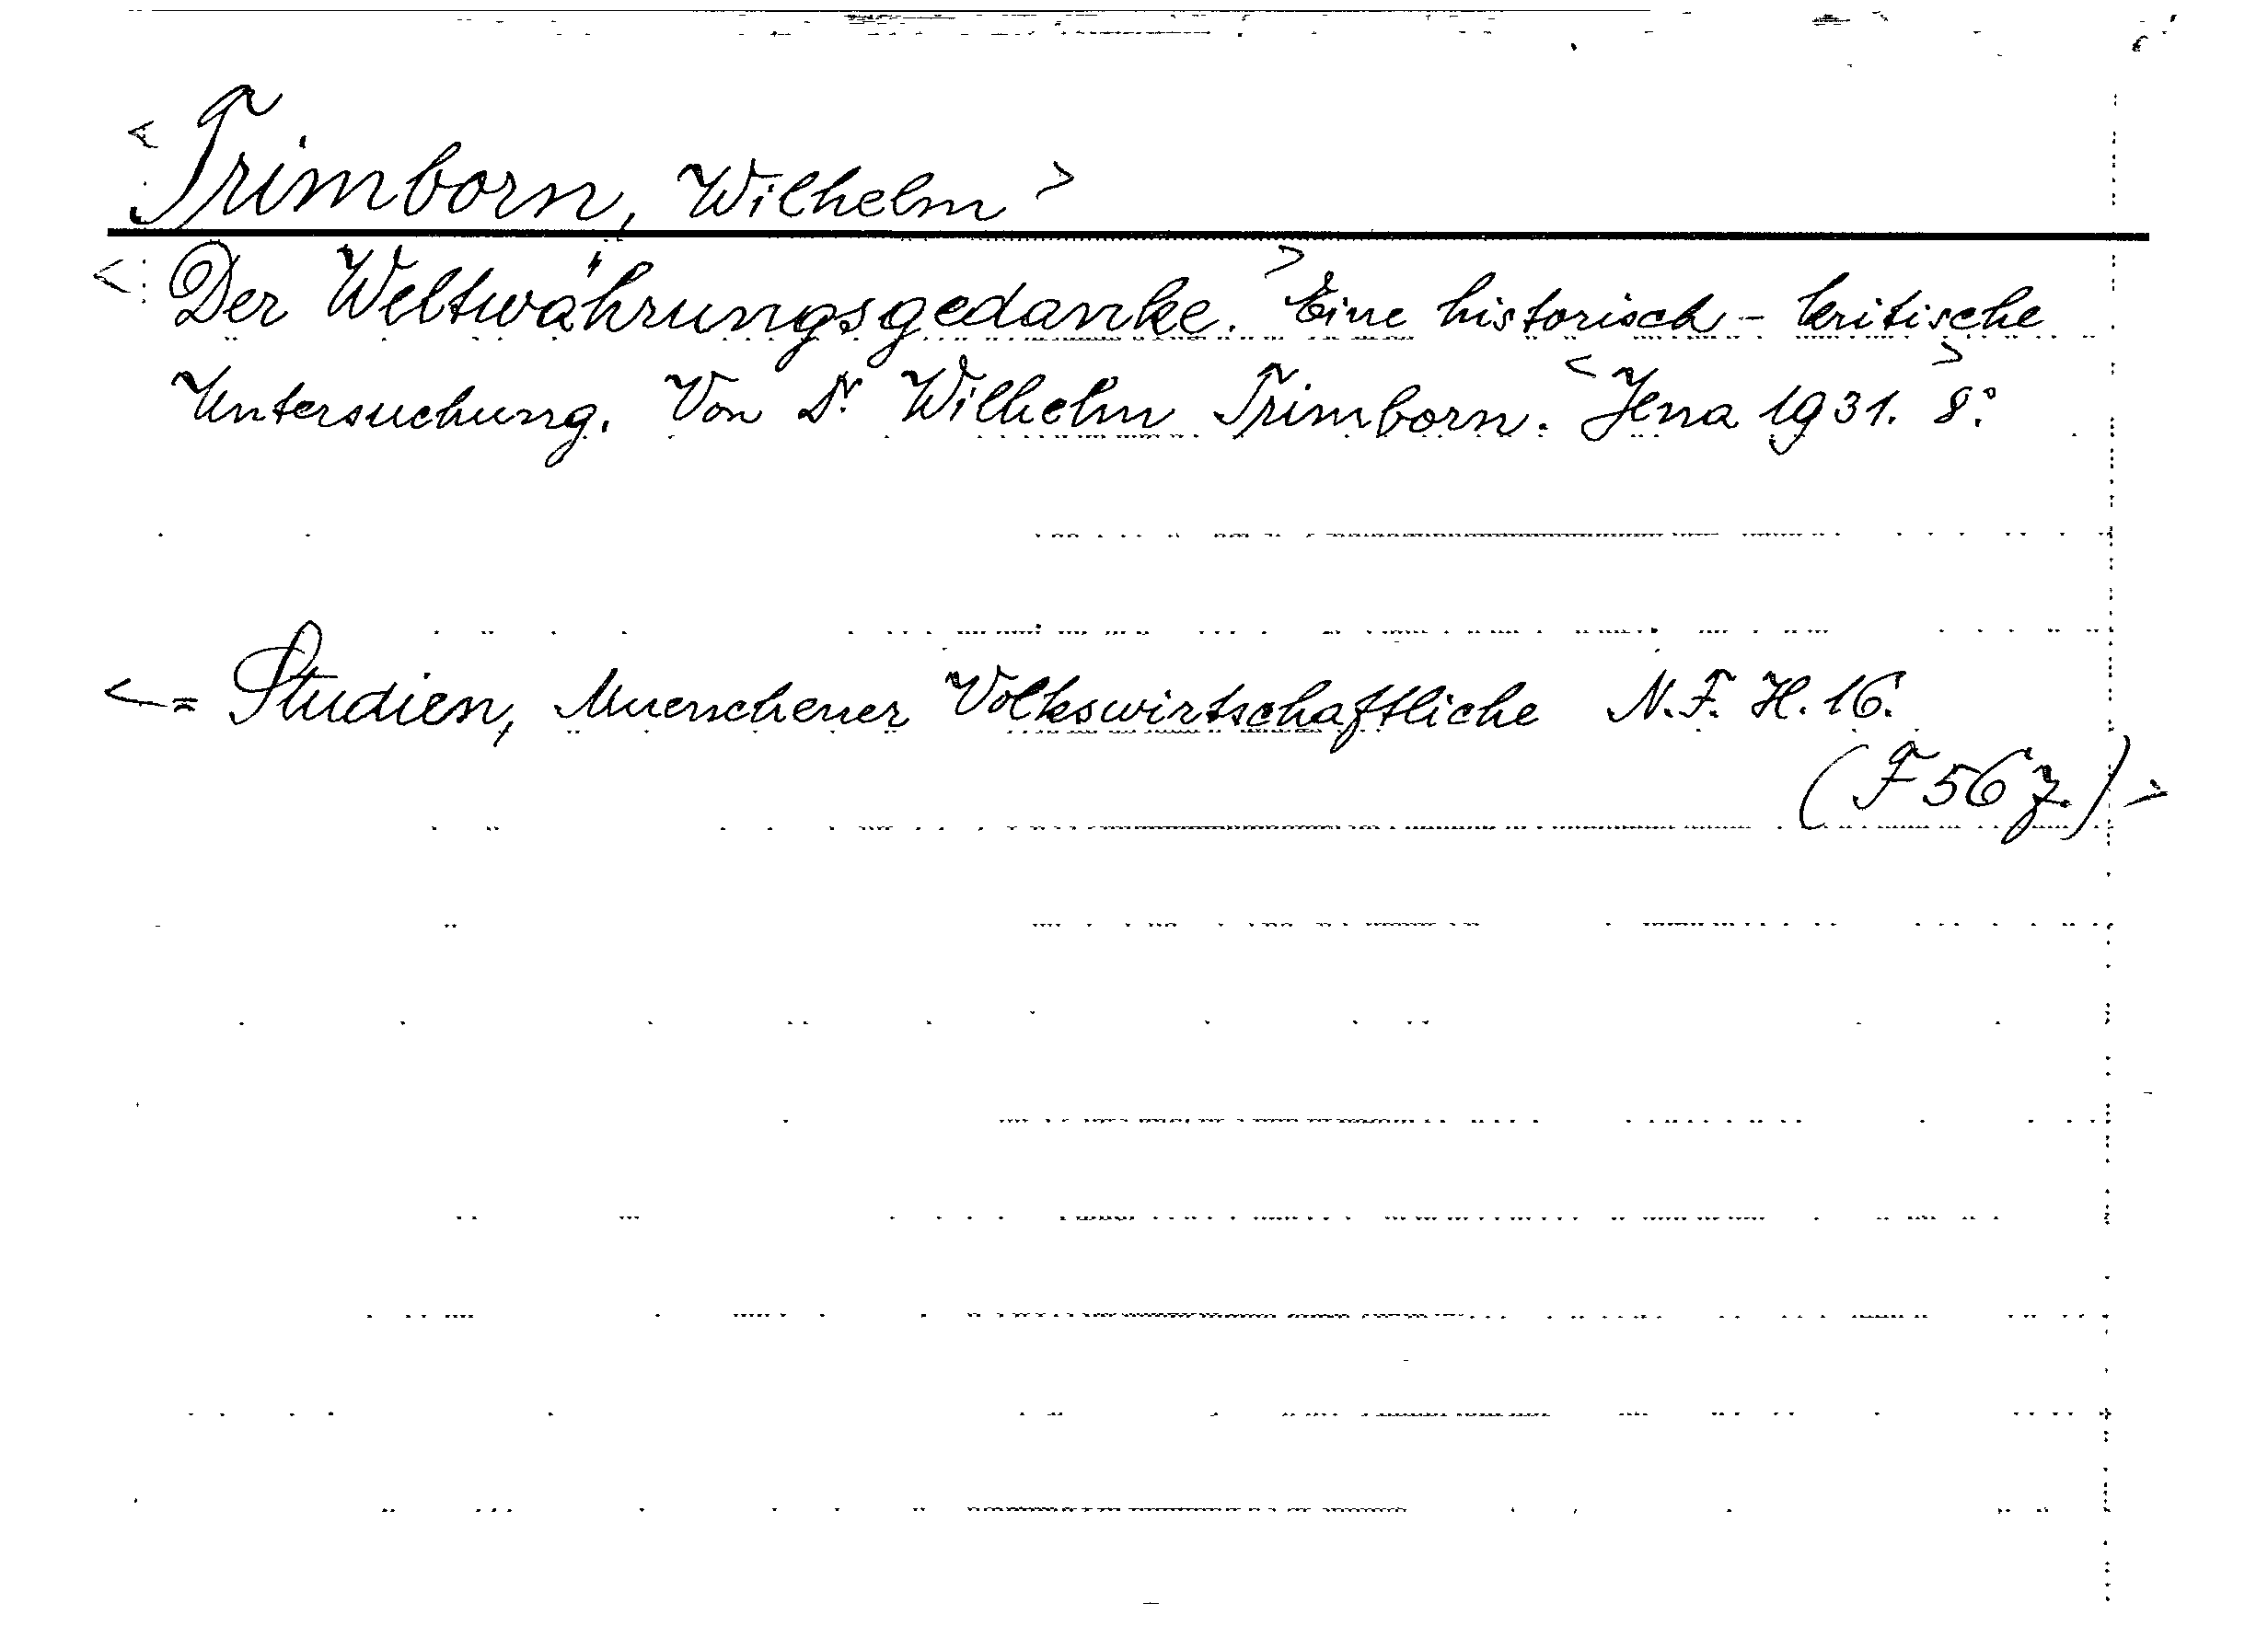 < Trimborn, Wilhelm >
< Der Weltwährungsgedanke. > Eine historisch-kritische
Untersuchung. Von Dr. Wilhelm Trimborn. < Jena 1931. > 8°.
< = Studien, Muenchener Volkswirtschaftliche N.F. H. 16.
(F 567.) >